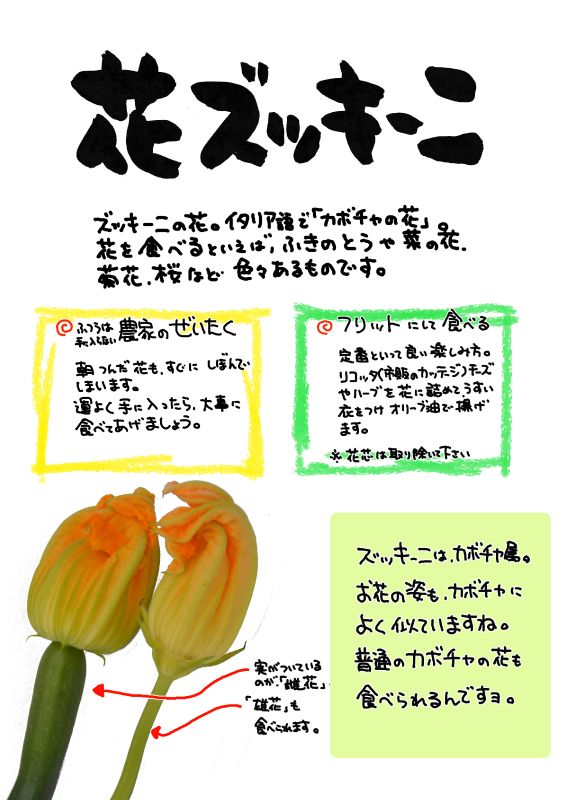 花ズッキーニ
ズッキーニの花。イタリア語で「カボチャの花」。
花を食べるといえば、ふきのとうや菜の花、
菊花、桜など色々あるものです。
ふつうは
手に入らない 農家のぜいたく
朝つんだ花も、すぐにしぼんで
しまいます。
運よく手に入ったら、大事に
食べてあげましょう。
フリットにして食べる
定番といって良い楽しみ方。
リコッタ(市販のカッテジ)チーズ
やハーブを花に詰めてうすい
衣をつけオリーブ油で揚げ
ます。
※花芯は取り除いて下さい
実がついている
のが、「雌花」。
「雄花」も
食べられます。
ズッキーニは、カボチャ属。
お花の姿も、カボチャに
よく似ていますね。
普通のカボチャの花も
食べられるんですョ。